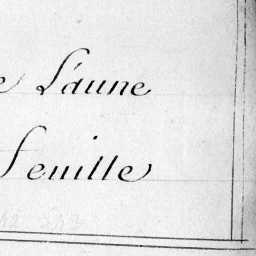 e L'aune
feuille